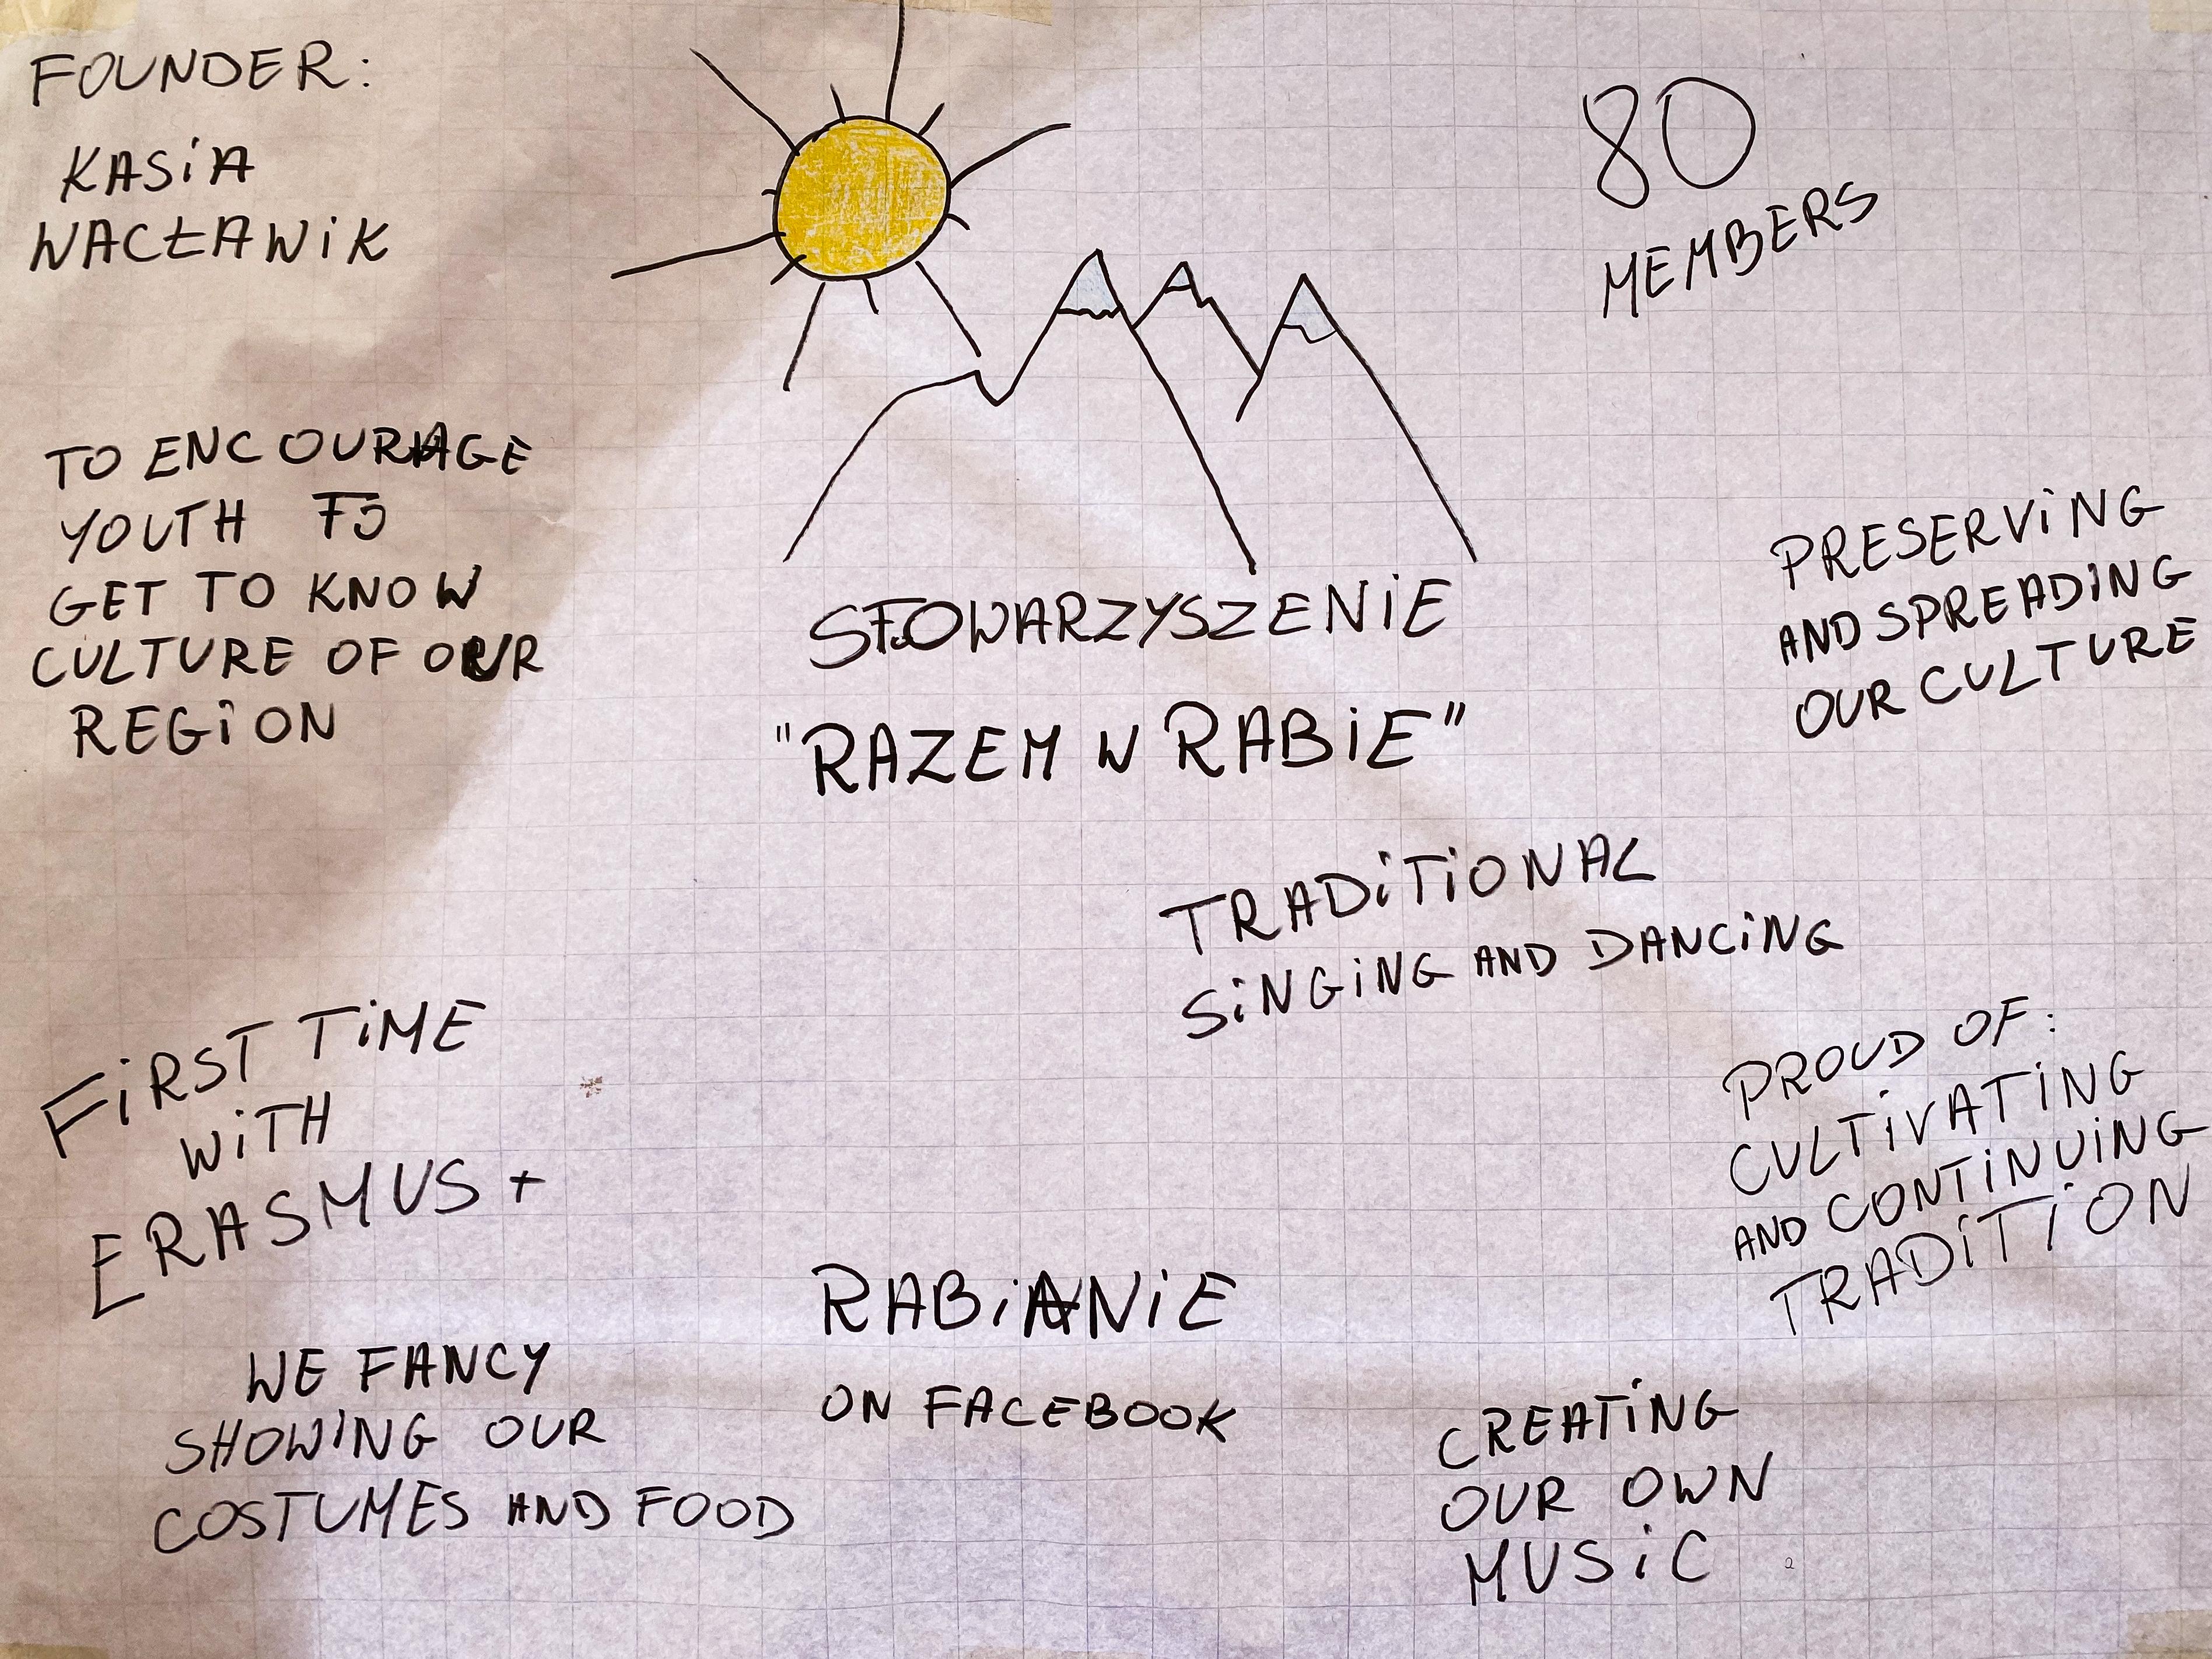 FOUNDER:
KASiA
WACŁAWiK
80
MEMBERS
TO ENCOURAGE
YOUTH TO
GET TO KNOW
CULTURE OF OUR
REGiON
STOWARZYSZENiE
"RAZEM W RABiE"
PRESERViNG
AND SPREADiNG
OUR CULTURE
TRADiTiONAL
SiNGiNG AND DANCiNG
FiRST TiME
WiTH
ERASMUS+
PROUD OF:
CULTiVATiNG
AND CONTiNUiNG
TRADiTiON
RABiANiE
ON FACEBOOK
WE FANCY
SHOWiNG OUR
COSTUMES AND FOOD
CREATiNG
OUR OWN
MUSiC